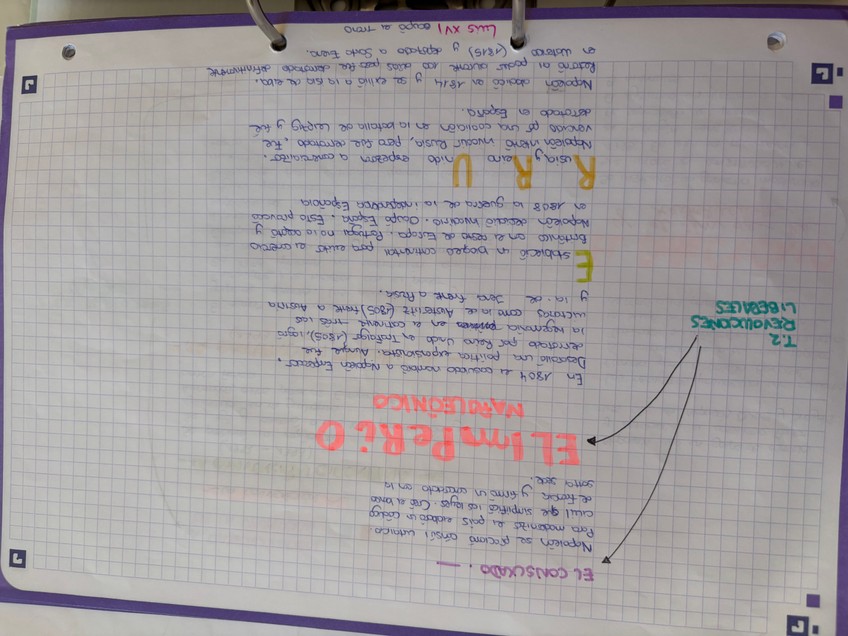 T.2
REVOLUCIONES
LIBERALES
EL CONSULADO. —
Napoleón se proclamó cónsul vitalicio.
Para modernizar el país elaboró un código
civil que simplificó las leyes. Creó el banco
de Francia y firmó un concordato con la
santa sede.
EL ImPeRiO
NAPOLEÓNICO
En 1804 el consulado nombró a Napoleón Emperador.
Desarrolló una política expansionista. Aunque fue
derrotado por Reino Unido en Trafalgar (1805), logró
la hegemonía en el continente tras las
victorias como la de Austerlitz (1805) frente a Austria
y la de Jena frente a Prusia.
Estableció un bloqueo continental para evitar el comercio
Británico en el resto de Europa. Portugal no lo aceptó y
Napoleón decidió invadirlo. Ocupó España. Esto provocó
en 1808 la guerra de la independencia Española
Rusia y Reino Unido empezaron a comercializar.
Napoleón intentó invadir Rusia, pero fue derrotado, fue
vencido por una coalición en la batalla de Leipzig y fue
derrotado en España.
Napoleón abdicó en 1814 y se exilió a la isla de Elba.
Retornó al poder durante 100 días pero fue derrotado definitivamente
en Waterloo (1815) y deportado a Santa Elena.
Luis XVI ocupó el trono